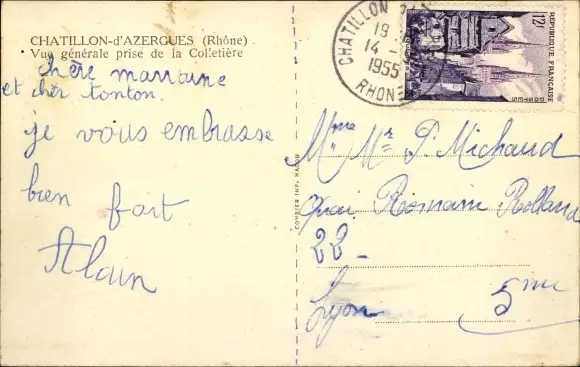 CHATILLON-d'AZERGUES (Rhône)
Vue générale prise de la Colletière
chère marraine
et chèr tonton
je vous embrasse
bien fort
Alain
COMBIER IMP. MACON
CHATILLON
19
14 -
1955
RHONE
12F
REPUBLIQUE FRANÇAISE
POSTES
Mme Mr P. Michaud
Quai Romain Rolland
22
Lyon 5me